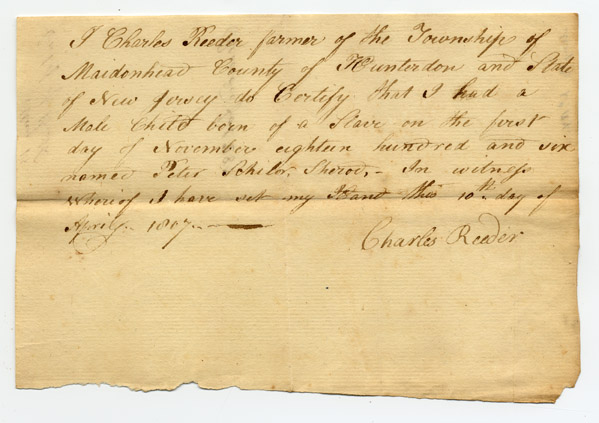 I Charles Reeder farmer of the Township of
Maidenhead County of Hunterdon and State
of New Jersey do Certify that I had a
Male Child born of a Slave on the first
day of November eighteen hundred and six
named Peter In witness
whereof I have set my Hand this 10th day of
April 1807
Charles Reeder